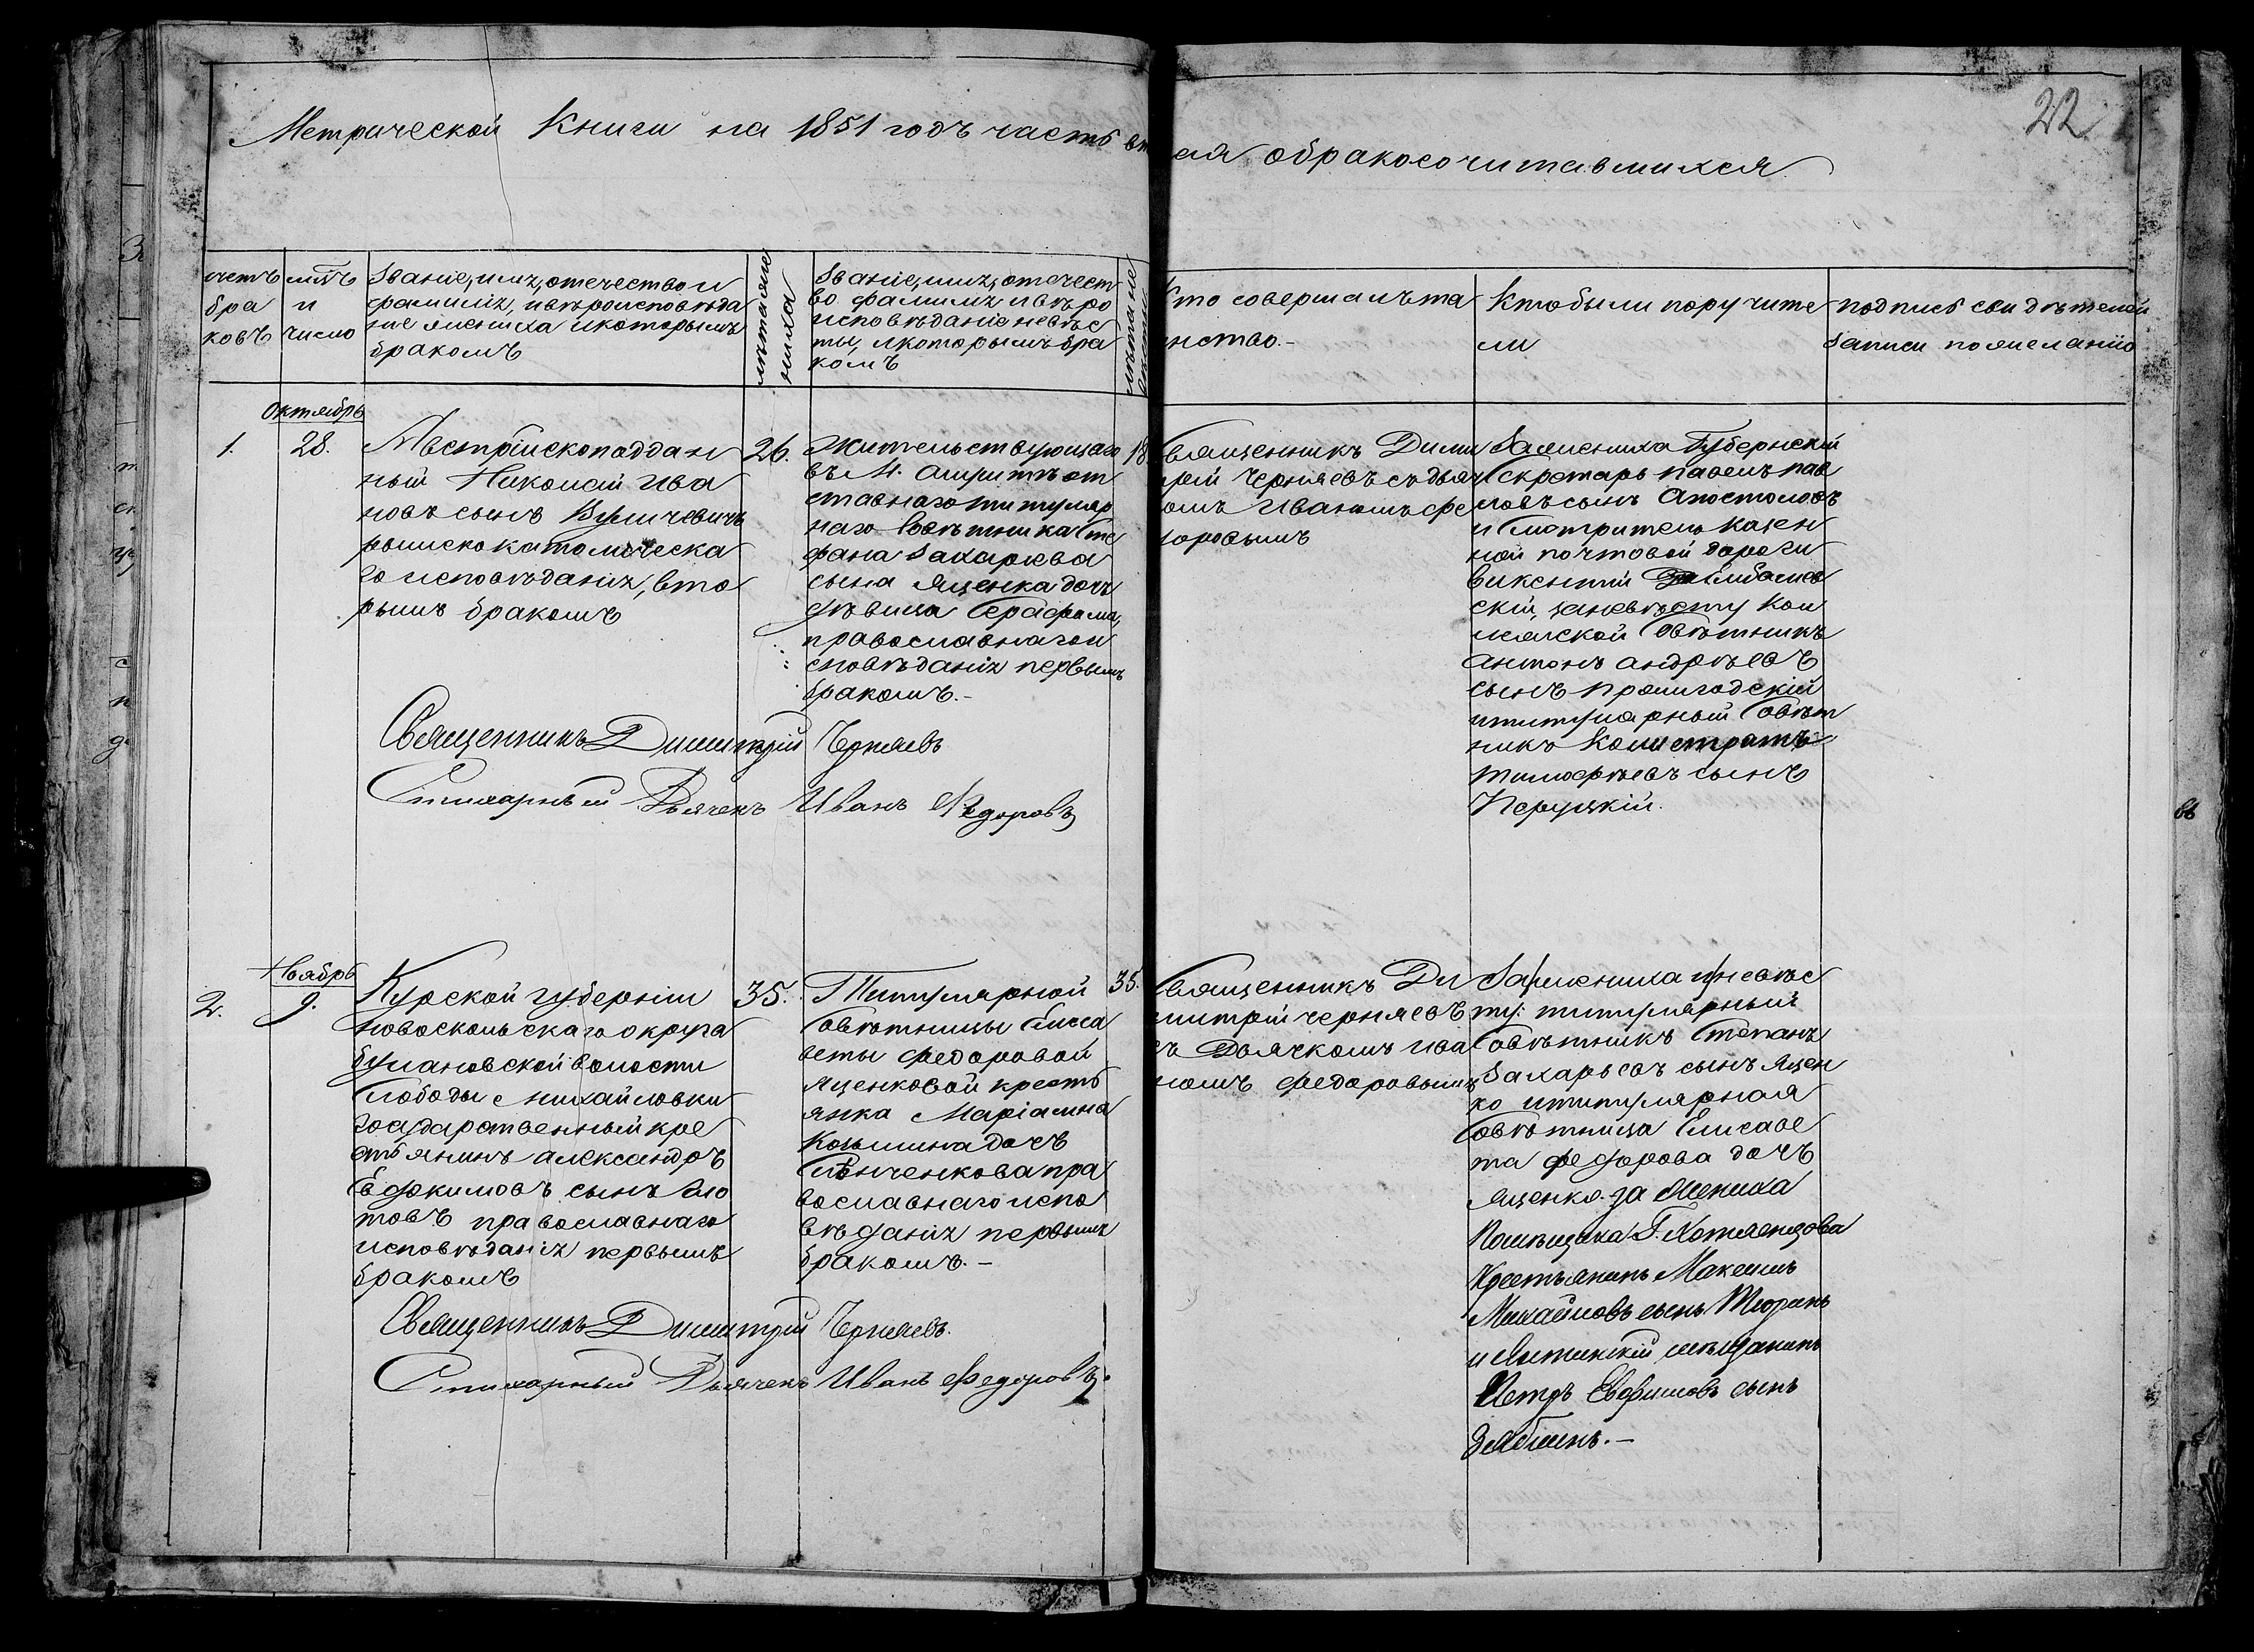 22
Метрической Книги на 1851 годъ часть вт
ая обракосочитавшихся
счетъ браковъ
мцъ и число
Званіе, имя, отечество и
фамилія, ивѣроисповѣда
ніе жениха икоторымъ
бракомъ
лѣта же
ниха
Званіе, имя, отечест
во фамилія ивѣро
исповѣданіе невѣс
ты, икоторымъ бра
комъ
лѣта не
Кто совершалъ та
инство.-
Ктобыли поручите
ли
подпись свидѣтелей
записи пожеланію
Октябрь
1.
28.
Австрійскоподдан
ный Николай Ива
новъ сынъ Вуличевичъ
римскокатолическа
го исповѣданія, вто
рымъ бракомъ
26.
Жительствующаго
въ М. от
ставнаго титуляр
наго Совѣтника Сте
фана Захарьева
сына Яценка дочь
дѣвица Серафима,
православнагои
сповѣданія первымъ
бракомъ.-
18
вященникъ Дими
трій Черняевъ съдьяч
омъ Иваномъ Фе
доровымъ
Зажениха Губернскій
Секретарь павелъ пав
ловъ сынъ Апостоловъ
и Смотритель казен
ной почтовой дороги
Викентій
скій, заневѣсту Кол
лежской Совѣтникъ
антонъ андрѣевъ
сынъ
ититулярный Совѣт
никъ Калистратъ
тимофѣевъ сынъ
Священникъ Димитрій Черняевъ
Стихарный Дьячекъ Иванъ Федоровъ
Ноябрь
2.
9.
Курской губерніи
новоскольскаго округа
булановской волости
Слободы михайловки
государственный кре
стьянинъ александръ
Ефимовъ сынъ
товъ православнаго
исповѣданія первымъ
бракомъ
35.
Титулярной
Совѣтницы Елиса
веты федоровой
Яценковой кресть
янка Маріамна
Козьмина дочь
пра
вославнаго испо
вѣданія первымъ
бракомъ.-
35.
вященникъ Ди
митрій черняевъ
съ Дьячкомъ ива
номъ федоровымъ
Зажениха иневѣс
ту: титулярный
Совѣтникъ Степанъ
Захарьевъ сынъ Яцен
ко ититулярная
Совѣтница Елисаве
та федорова дочь
Яценко. за Жениха
Помѣщика Г. Хотяенцова
Крестьянинъ Максимъ
Михайловъ сынъ Тюринъ
и Ялтинскій мѣщанинъ
Петръ Евфимовъ сынъ
Зябкинъ.-
Священникъ Димитрій Черняевъ.
Стихарный Дьячекъ Иванъ Федоровъ.